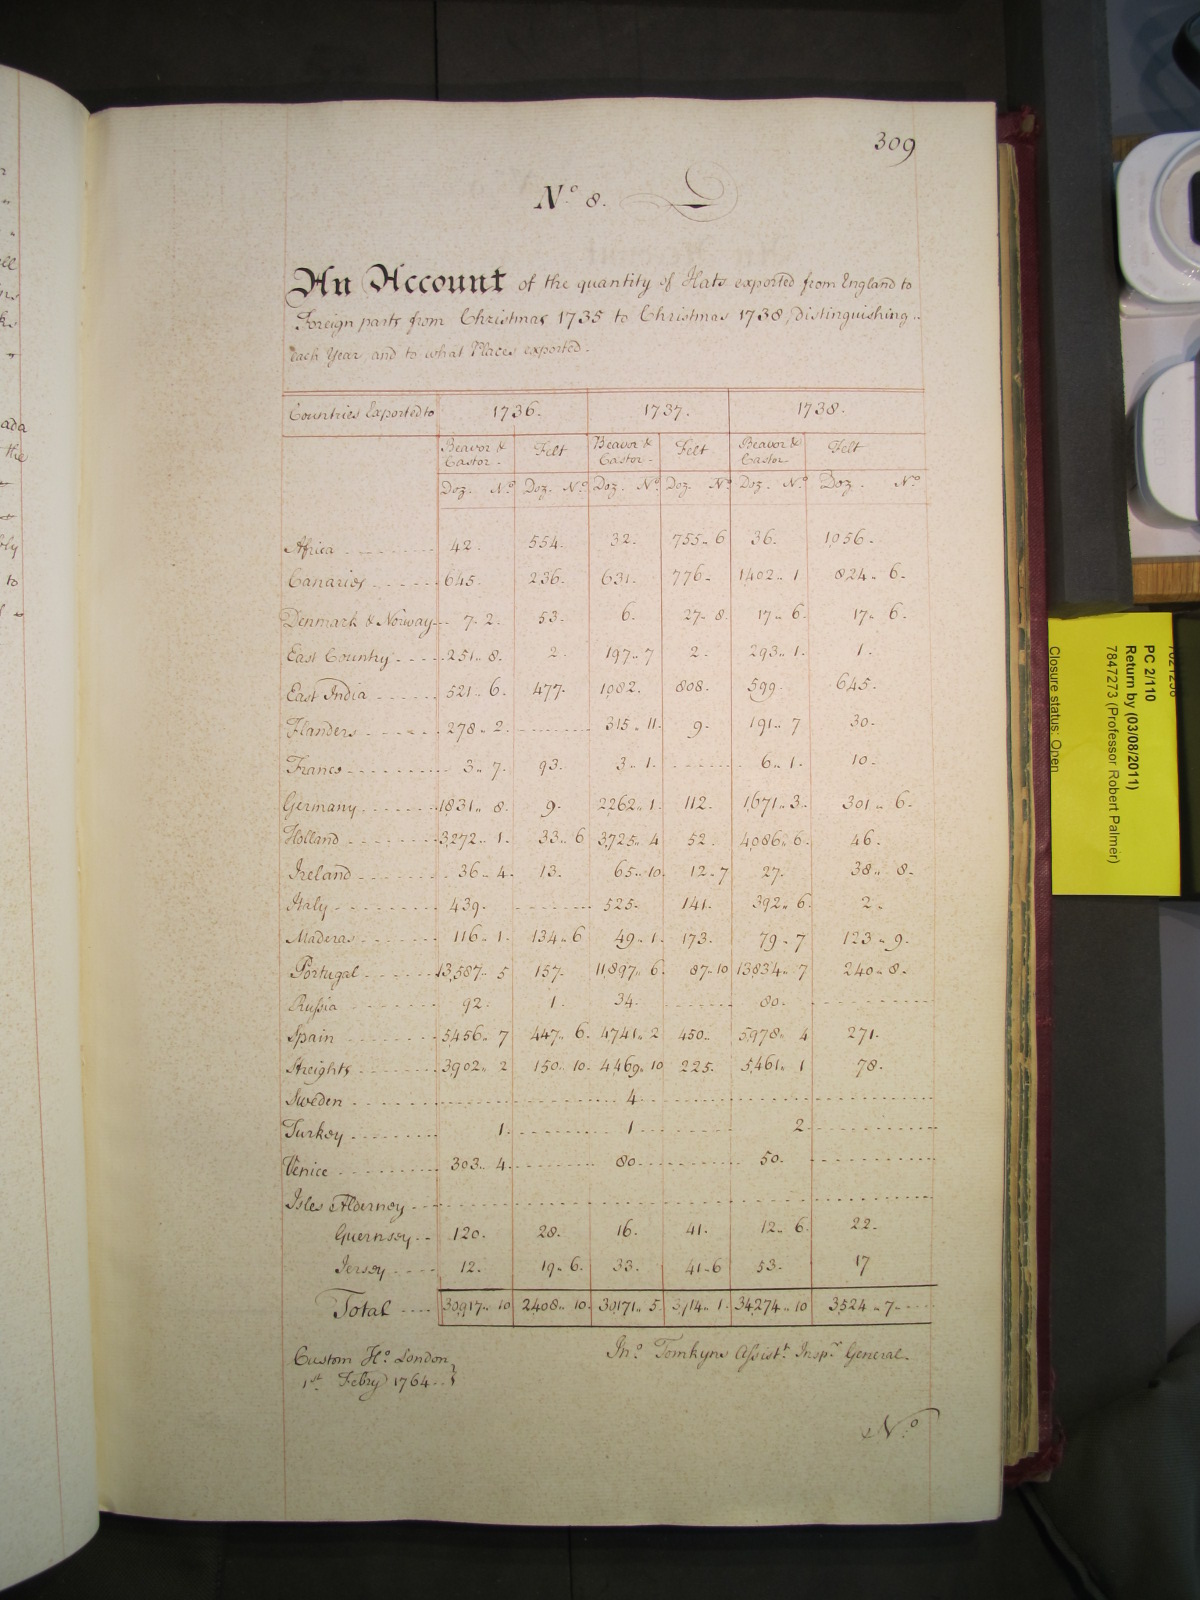 309
No. 8.
An Account of the quantity of Hats exported from England to
Foreign parts from Christmas 1735 to Christmas 1738, distinguishing
each Year, and to what Places exported.
Countries Exported to 1736. 1737. 1738.
Beavor & Castor Felt Beavor & Castor Felt Beavor & Castor Felt
Doz. No. Doz. No. Doz. No. Doz. No. Doz. No. Doz. No.
Africa 42. 554. 32. 755.. 6 36. 1056.
Canaries 645. 236. 631. 776. 1402.. 1 824.. 6.
Denmark & Norway 7. 2. 53. 6. 27.. 8 17.. 6. 17.. 6.
East Country 251.. 8. 2. 197.. 7 2. 293.. 1. 1.
East India 521.. 6. 477. 1082. 808. 599. 645.
Flanders 278.. 2. 315.. 11. 9. 191.. 7 30.
France 3.. 7. 93. 3.. 1. 6.. 1. 10.
Germany 1831.. 8. 9. 2262.. 1. 112. 1,671.. 3. 301.. 6.
Holland 3,272.. 1. 33.. 6 3,725.. 4 52. 4086.. 6. 46.
Ireland 36.. 4. 13. 65.. 10. 12.. 7 27. 38.. 8.
Italy 439. 525. 141. 392.. 6. 2.
Maderas 116.. 1. 134.. 6 49.. 1. 173. 79.. 7 123.. 9.
Portugal 13,587.. 5 157. 11,897.. 6. 87.. 10 13,834.. 7 240.. 8.
Russia 92. 1. 34. 80.
Spain 5456.. 7 447.. 6. 4741.. 2 450.. 5,978.. 4 271.
Streights 3902.. 2 150.. 10. 4,469.. 10 225. 5,461.. 1 78.
Sweden 4
Turkey 1. 1 2
Venice 303.. 4. 80. 50.
Isles Alderney
Guernsey 120. 28. 16. 41. 12.. 6. 22.
Jersey 12. 19.. 6. 33. 41..6 53. 17
Total 30,917.. 10 2408.. 10. 30,171.. 5. 3,714.. 1. 34,274.. 10 3,524.. 7
Custom Ho. London
1st. Febry 1764.
Jno. Tomkyns Assistt. Inspr. General.
No.
PC 2/110
Return by (03/08/2011)
7847273 (Professor Robert Palmer)
Closure status: Open